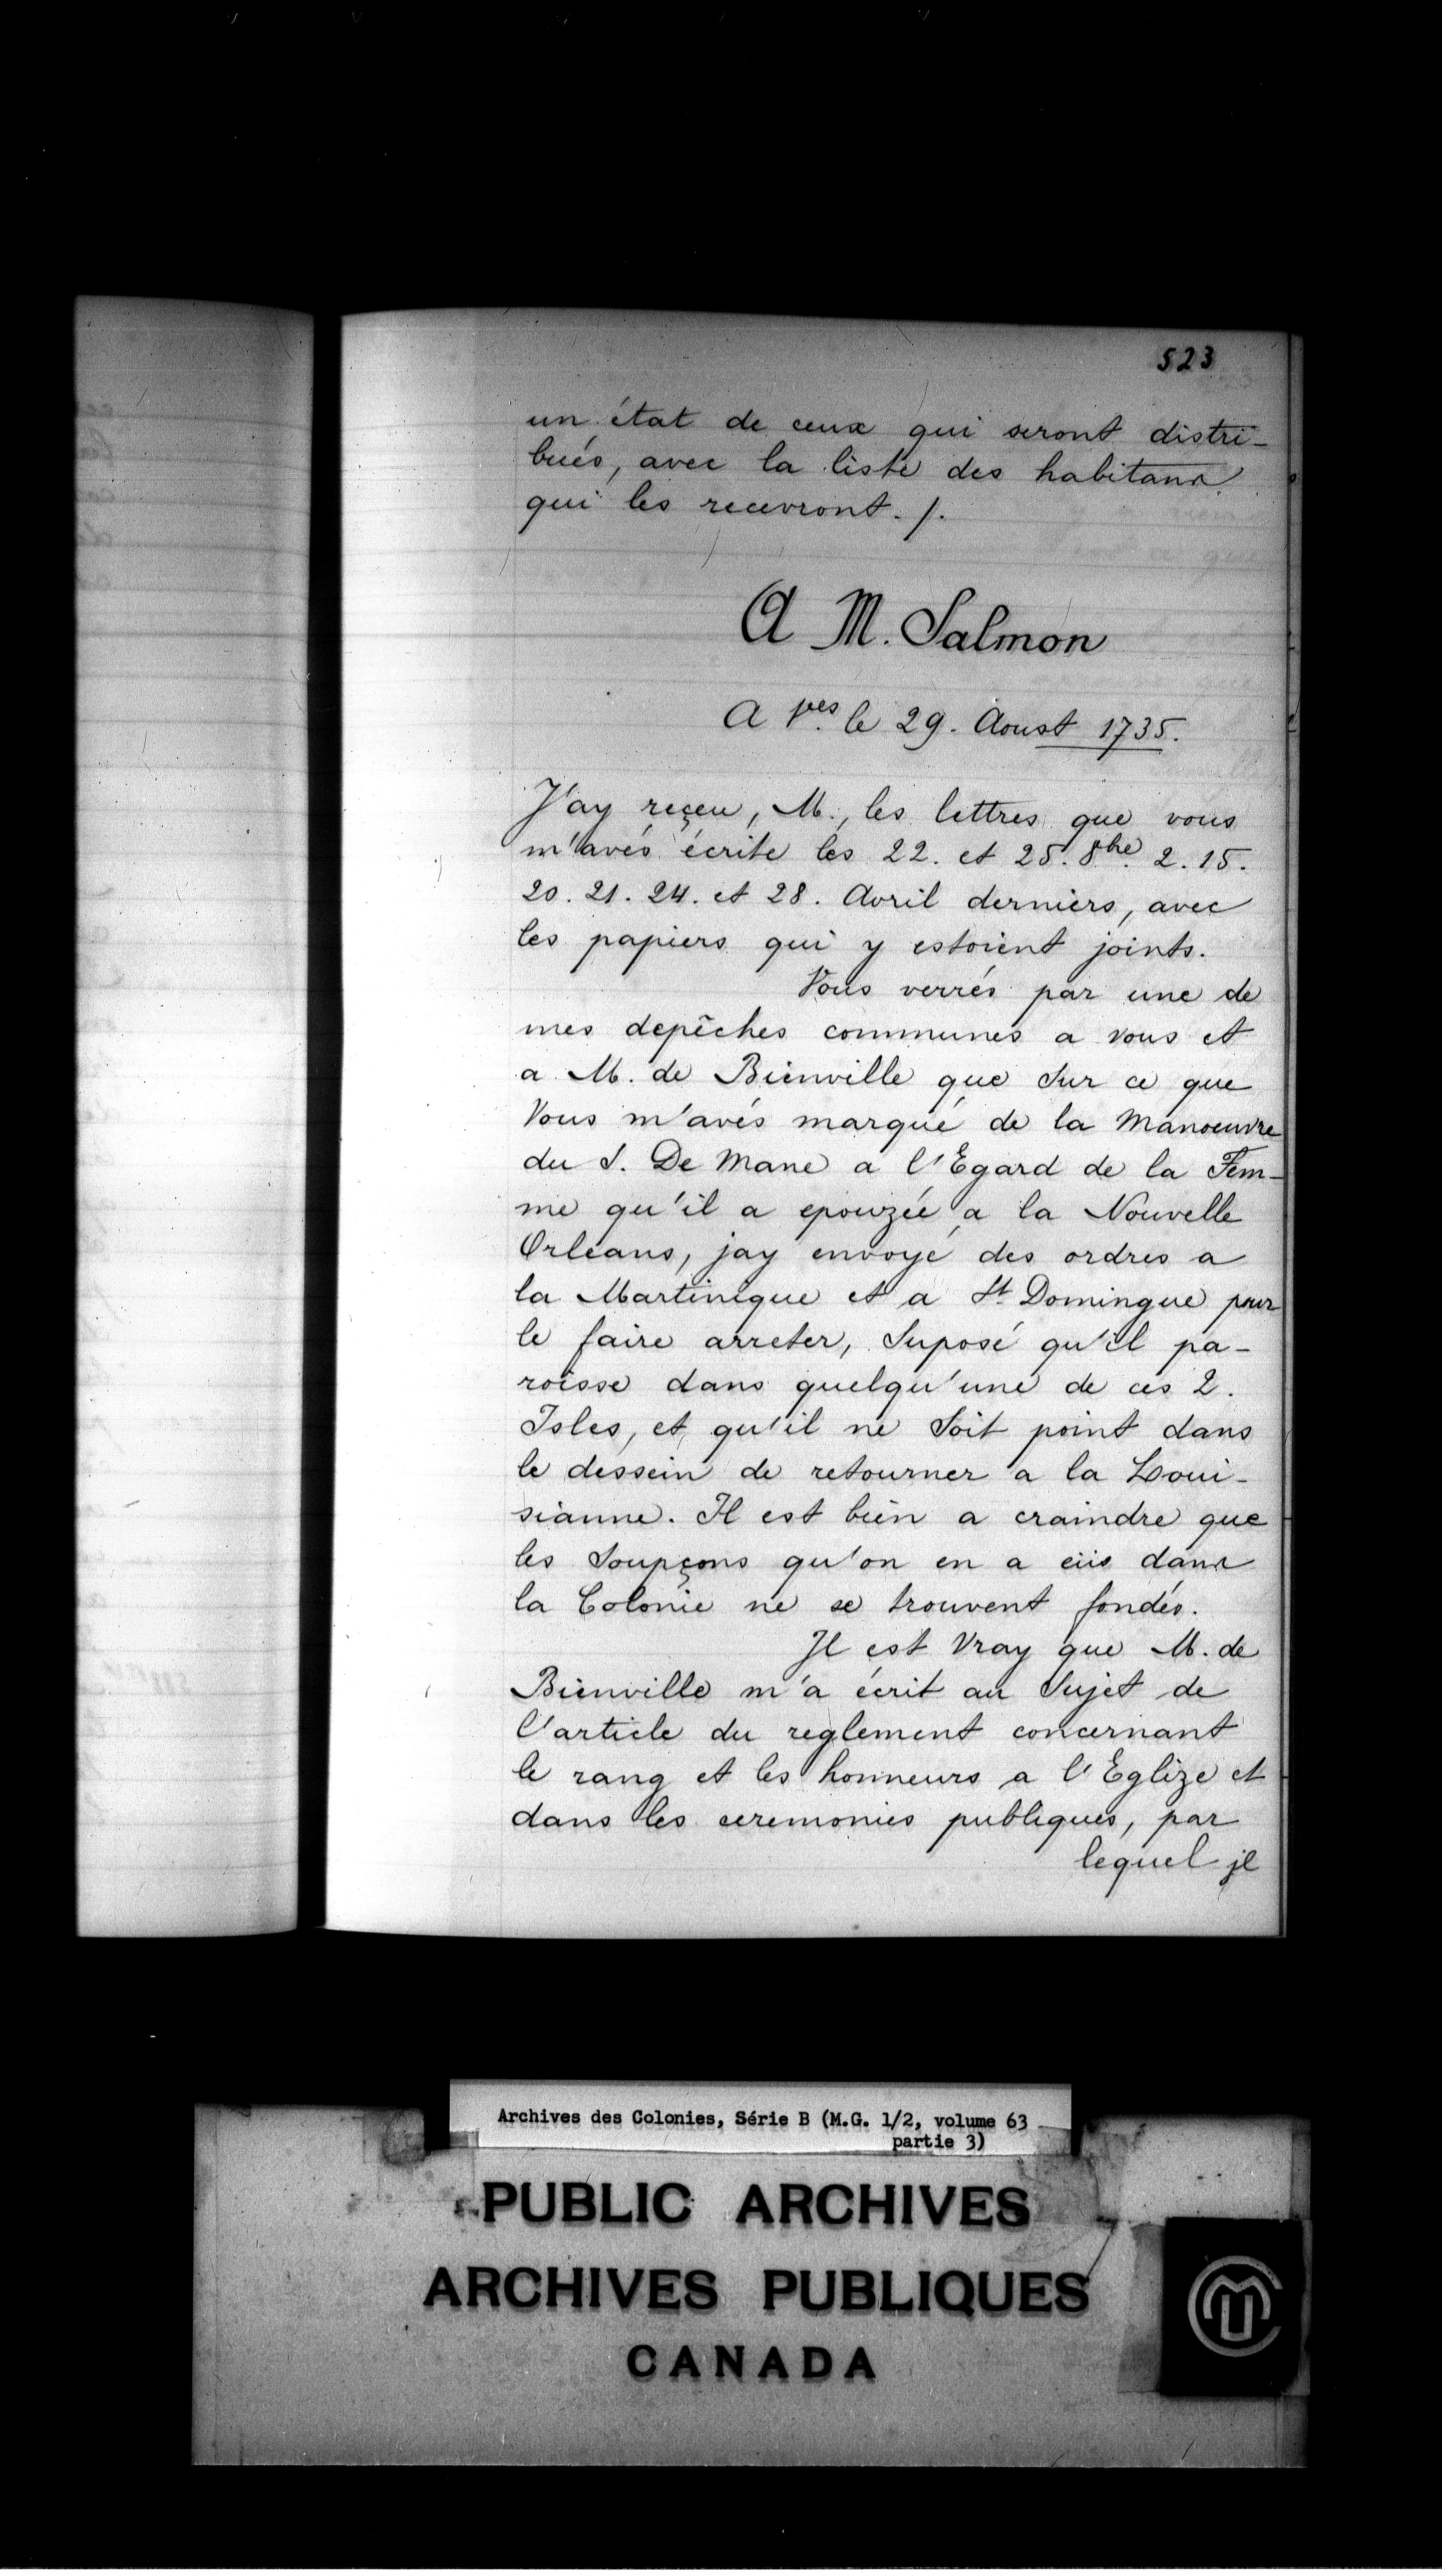 523
un état de ceux qui seront distri-
bués, avec la liste des habitans
qui les recevront. /.
A M. Salmon
A Ves. le 29. Aoust 1735.
J'ay reçeu, M., les lettres que vous
m'avés écrite les 22. et 25. 8bre. 2. 15.
20. 21. 24. et 28. Avril derniers, avec
les papiers qui y estoient joints.
Vous verrés par une de
mes depêches communes a vous et
a M. de Bienville que sur ce que
Vous m'avés marqué de la Manoeuvre
du S. De Mane a l'Egard de la Fem-
me qu'il a epouzée a la Nouvelle
Orleans, jay envoyé des ordres a
la Martinique et a St. Domingue pour
le faire arreter, Suposé qu'il pa-
roisse dans quelqu'une de ces 2.
Isles, et qu'il ne Soit point dans
le dessein de retourner a la Loui-
sianne. Il est bien a craindre que
les Soupçons qu'on en a eüs dans
la Colonie ne se trouvent fondés.
Il est Vray que M. de
Bienville m'a écrit au Sujet de
l'article du reglement concernant
le rang et les honneurs a l'Eglize et
dans les ceremonies publiques, par
lequel jl
Archives des Colonies, Série B (M.G. 1/2, volume 63
partie 3)
PUBLIC ARCHIVES
ARCHIVES PUBLIQUES
CANADA